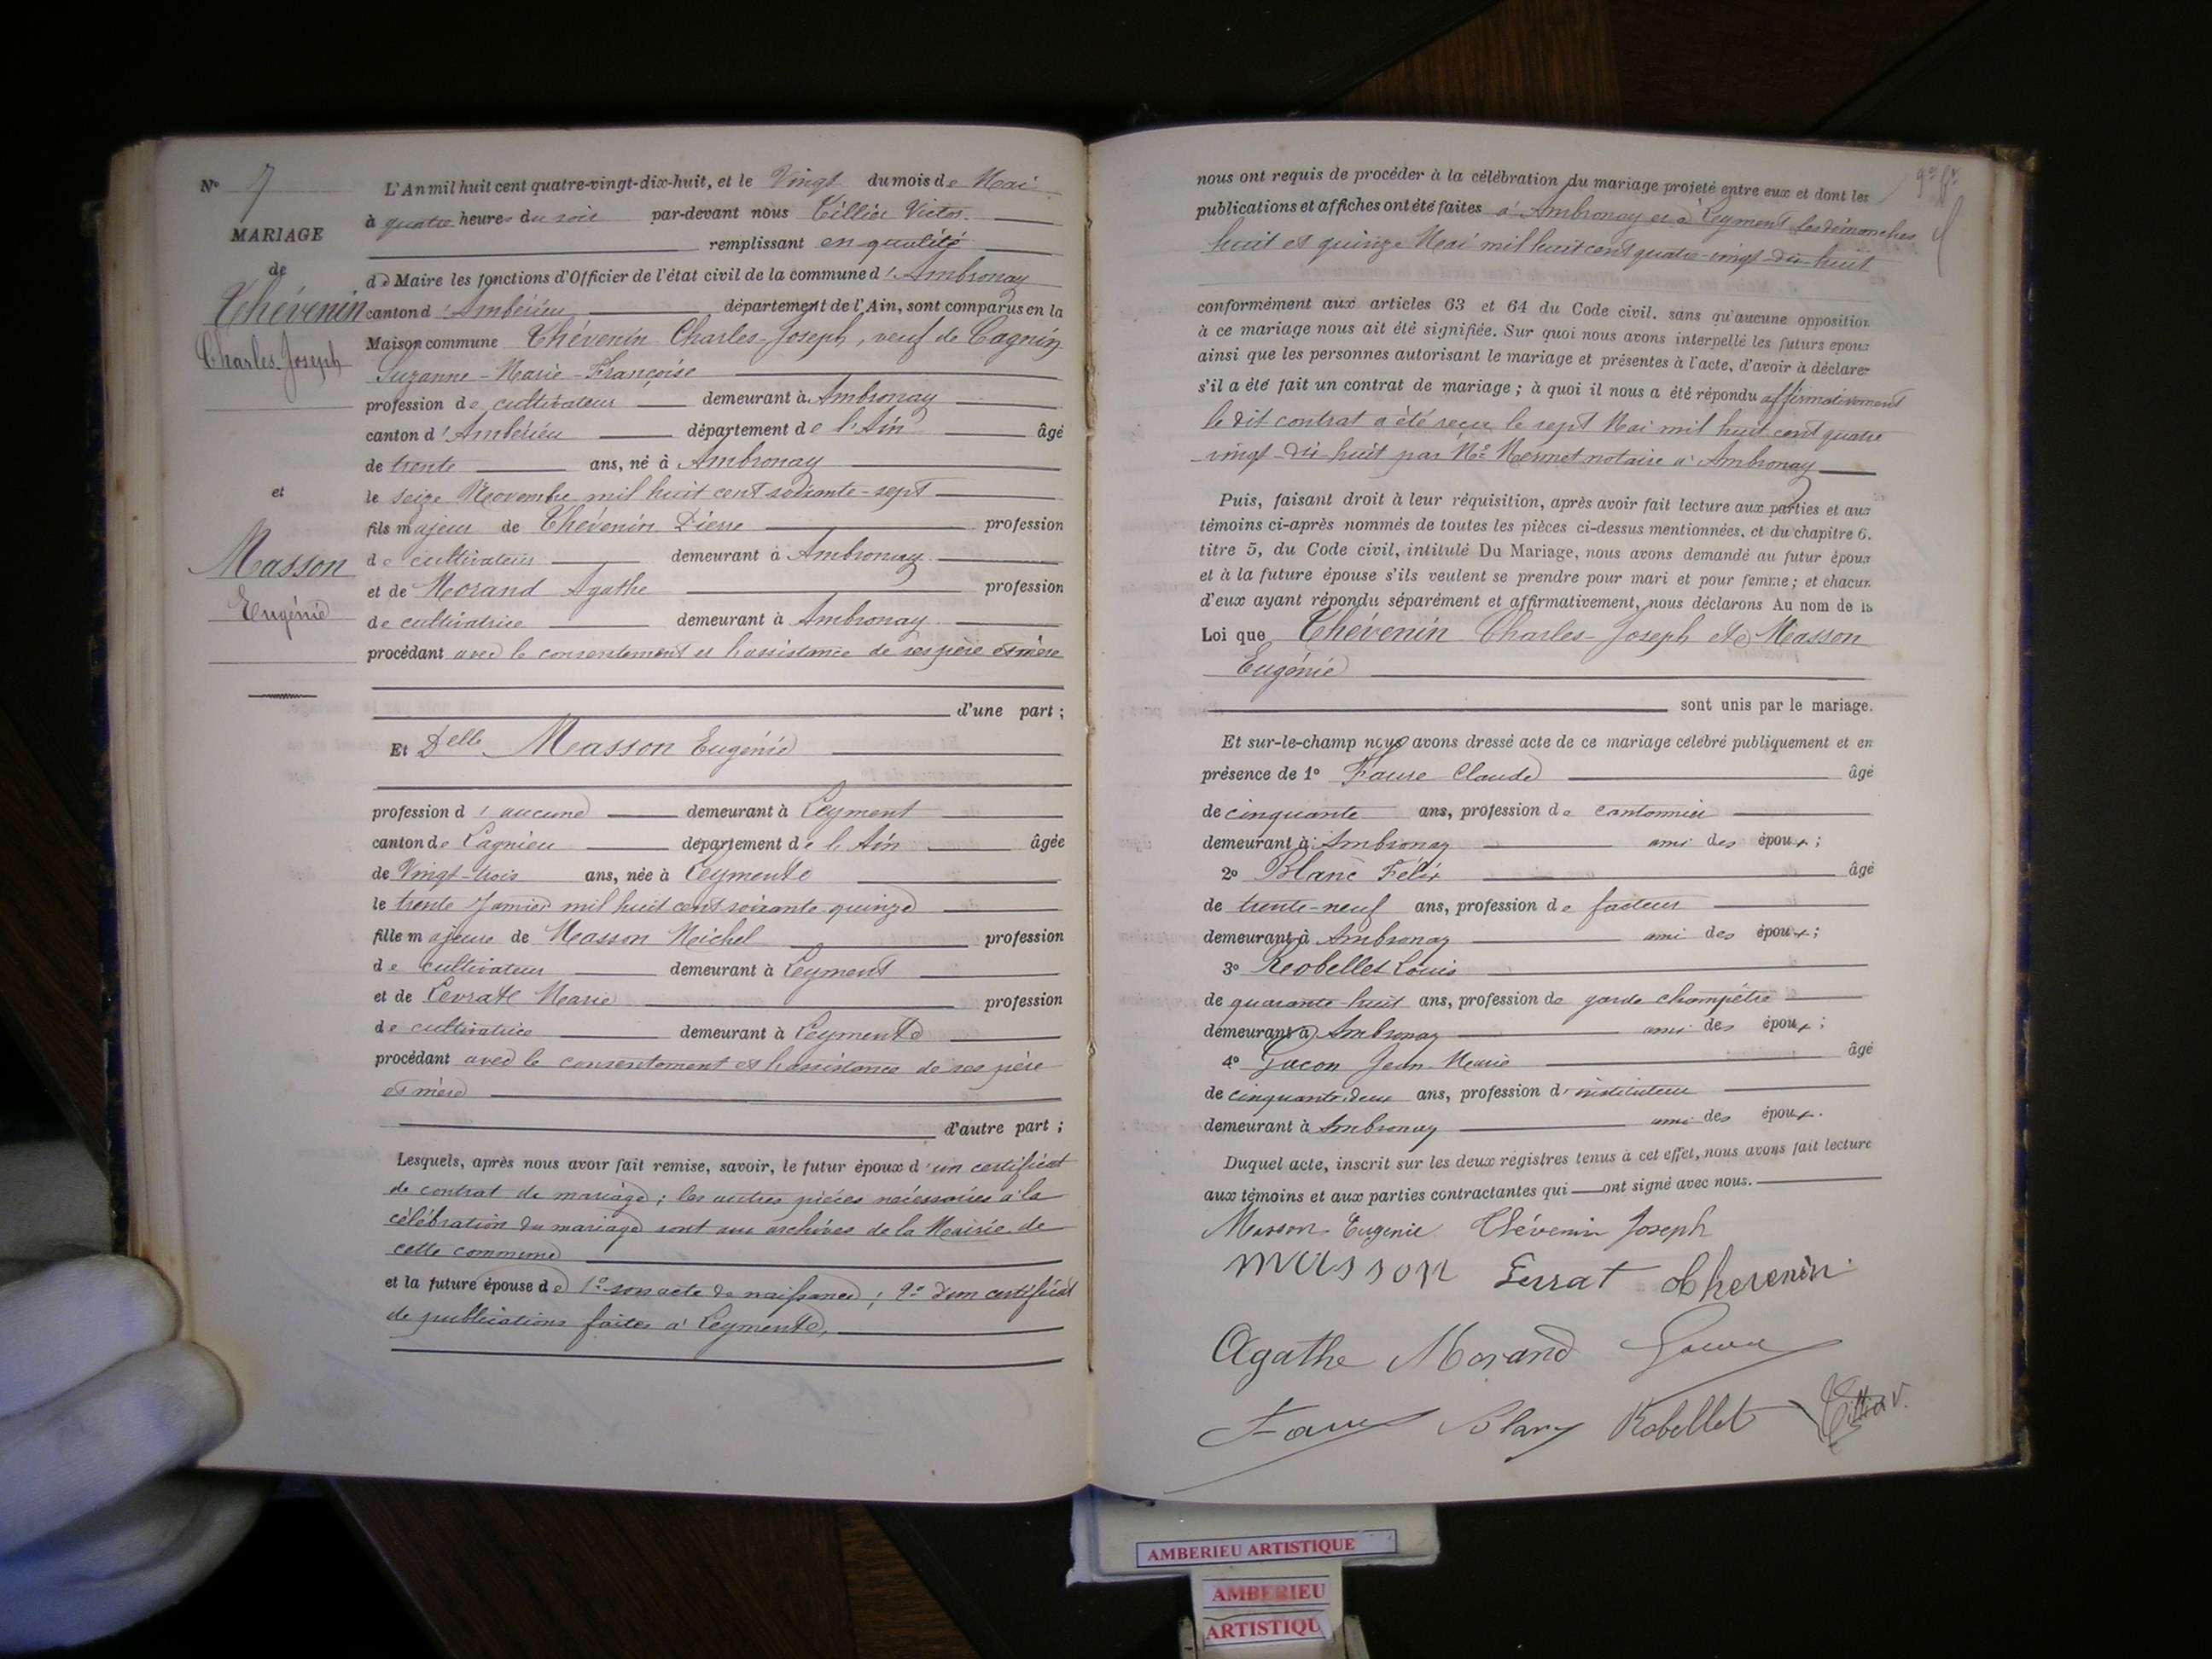 N° 7
MARIAGE
de
Thévenin
Charles-Joseph
et
Masson
Eugénie
L'An mil huit cent quatre-vingt-dix-huit, et le Vingt du mois de Mai
à quatre heures du soir par-devant nous Tillier Victor
remplissant en qualité
de Maire les fonctions d'Officier de l'état civil de la commune d'Ambronay
canton d'Ambérieu département de l'Ain, sont comparus en la
Maison commune Thévenin Charles-Joseph, veuf de Cagnin
Suzanne-Marie-Françoise
profession de cultivateur demeurant à Ambronay
canton d'Ambérieu département de l'Ain âgé
de trente ans, né à Ambronay
le seize Novembre mil huit cent soixante-sept
fils majeur de Thévenin Pierre profession
de cultivateur demeurant à Ambronay
et de Morand Agathe profession
de cultivatrice demeurant à Ambronay
procédant avec le consentement et l'assistance de ses père et mère
d'une part ;
Et Delle Masson Eugénie
profession d'aucune demeurant à Leyment
canton de Lagnieu département de l'Ain âgée
de Vingt-trois ans, née à Leyment
le trente Janvier mil huit cent soixante-quinze
fille majeure de Masson Michel profession
de cultivateur demeurant à Leyment
et de Levrat Marie profession
de cultivatrice demeurant à Leyment
procédant avec le consentement et l'assistance de ses père
et mère
d'autre part ;
Lesquels, après nous avoir fait remise, savoir, le futur époux d'un certificat
de contrat de mariage ; les autres pièces nécessaires à la
célébration du mariage sont aux archives de la Mairie de
cette commune
et la future épouse de 1° son acte de naissance ; 2° d'un certificat
de publications faites à Leyment,
nous ont requis de procéder à la célébration du mariage projeté entre eux et dont les
publications et affiches ont été faites à Ambronay et à Leyment les dimanches
huit et quinze Mai mil huit cent quatre-vingt-dix-huit
conformément aux articles 63 et 64 du Code civil. sans qu'aucune opposition
à ce mariage nous ait été signifiée. Sur quoi nous avons interpellé les futurs époux
ainsi que les personnes autorisant le mariage et présentes à l'acte, d'avoir à déclarer
s'il a été fait un contrat de mariage ; à quoi il nous a été répondu affirmativement
le dit contrat a été reçu le sept Mai mil huit cent quatre
vingt-dix-huit par Me Mermet notaire à Ambronay
Puis, faisant droit à leur réquisition, après avoir fait lecture aux parties et aux
témoins ci-après nommés de toutes les pièces ci-dessus mentionnées, et du chapitre 6.
titre 5, du Code civil, intitulé Du Mariage, nous avons demandé au futur époux
et à la future épouse s'ils veulent se prendre pour mari et pour femme ; et chacun
d'eux ayant répondu séparément et affirmativement, nous déclarons Au nom de la
Loi que Thévenin Charles-Joseph et Masson
Eugénie
sont unis par le mariage.
Et sur-le-champ nous avons dressé acte de ce mariage célébré publiquement et en
présence de 1° Faure Claude âgé
de cinquante ans, profession de cantonnier
demeurant à Ambronay ami des époux ;
2° Blanc Félix âgé
de trente-neuf ans, profession de facteur
demeurant à Ambronay ami des époux ;
3° Robellet Louis
de quarante-huit ans, profession de garde champêtre
demeurant à Ambronay ami des époux ;
4° Gacon Jean-Marie âgé
de cinquante-deux ans, profession d'instituteur
demeurant à Ambronay ami des époux.
Duquel acte, inscrit sur les deux registres tenus à cet effet, nous avons fait lecture
aux témoins et aux parties contractantes qui ont signé avec nous.
Masson Eugénie Thévenin Joseph
masson Levrat Thevenin
Agathe Morand Gacon
Faure Blanc Robellet Tillier V.
AMBERIEU ARTISTIQUE
AMBERIEU
ARTISTIQU